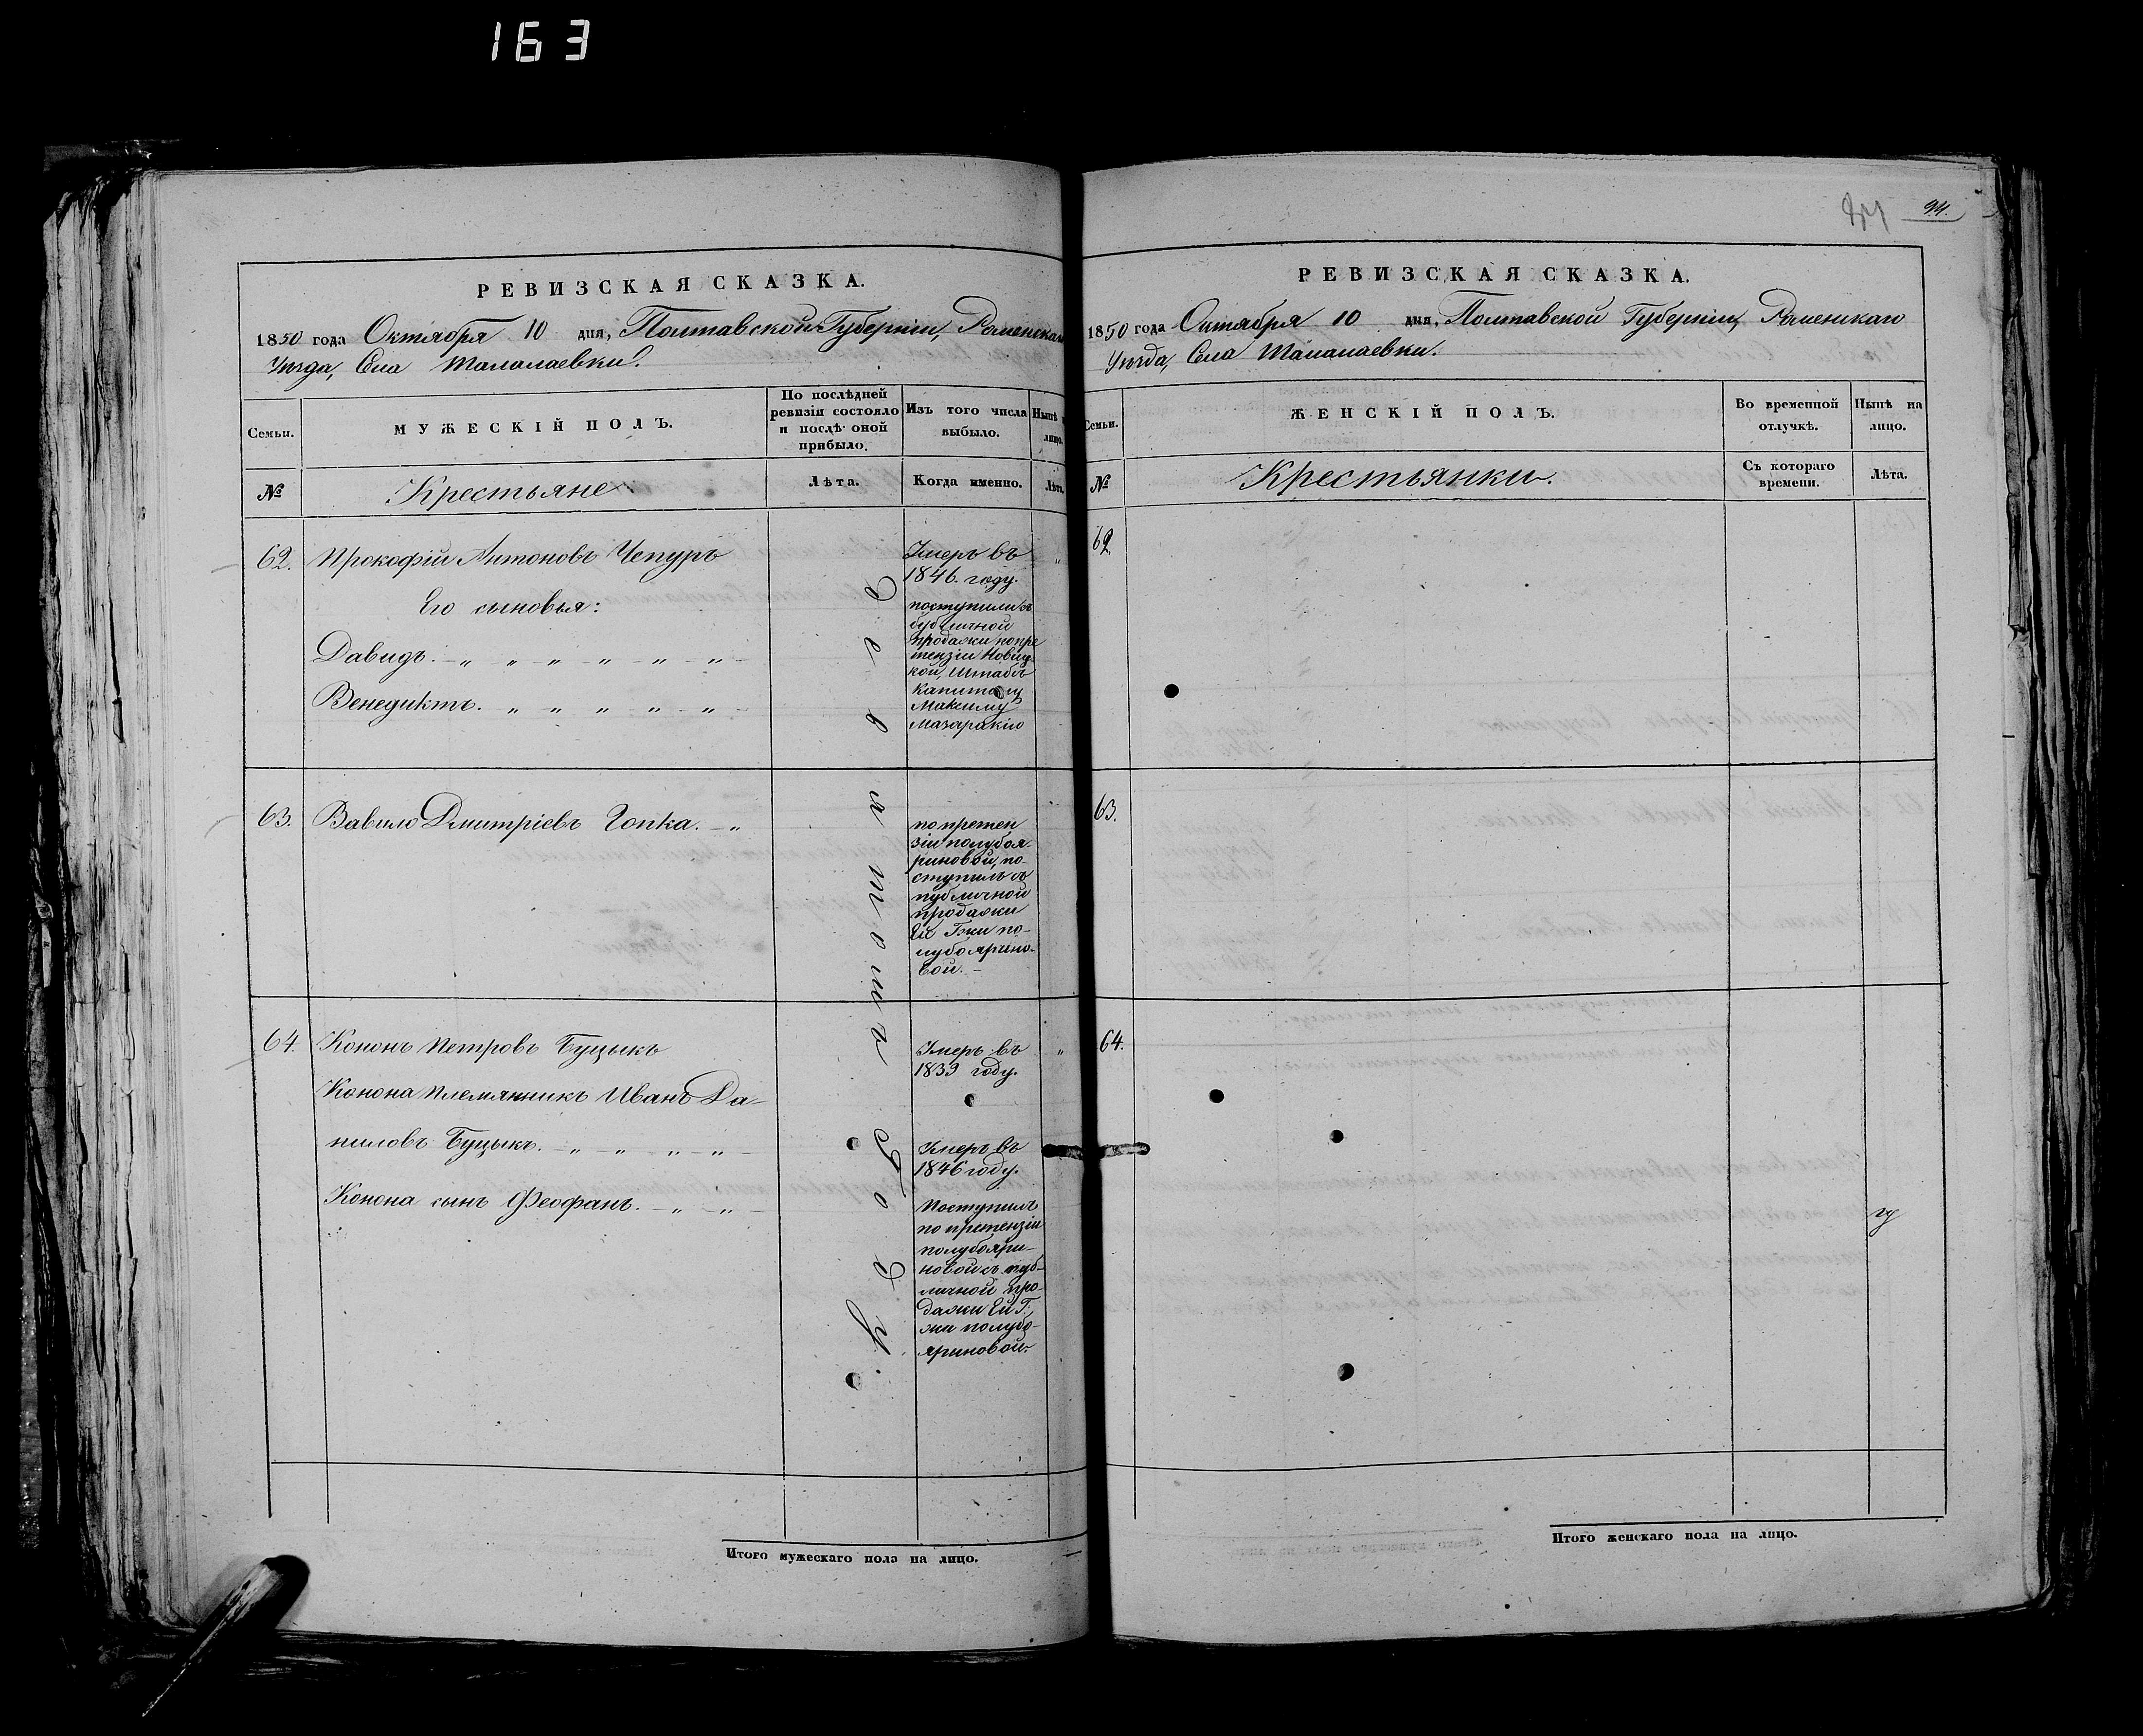 163
РЕВИЗСКАЯ СКАЗКА.
1850 года Октября 10 дня, Полтавской Губерніи, Роменскаго
Уѣзда, Села Талалаевки.
Семьи.
МУЖЕСКІЙ ПОЛЪ.
По послѣдней
ревизіи состояло
и послѣ оной
прибыло.
Изъ того числа
выбыло.
Нынѣ
лицо.
№
Крестьяне
Лѣта.
Когда именно.
Лѣта.
62. Прокофій Антоновъ Чепуръ
Умеръ въ
1846. году.
Его сыновья:
Давидъ. „ „ „ „ „ „
Венедиктъ. „ „ „ „ „
поступили съ
публичной
продажи по пре
тензіи Новиц
кой, Штабъ
Капитану
Максиму
Мазаракію
63. Вавило Дмитріевъ Гопка. „
по претен
зіи полубоя-
риновой, по-
ступилъ съ
публичной
продажи
Ей Г-жи по-
лубоярино-
вой.
64. Кононъ Петровъ Буцыкъ
Умеръ въ
1839 году.
„
Конона племянникъ Иванъ Да-
ниловъ Буцыкъ. „ „ „ „
Умеръ въ
1846 году.
Конона сынъ Феофанъ. „ „
Поступилъ
по претензіи
полубояри-
новой съ пуб-
личной про-
дажи Ей Г-
жи полубо-
яриновой.
девятого году.
Итого мужескаго пола на лицо.
94.
РЕВИЗСКАЯ СКАЗКА.
1850 года Октября 10 дня, Полтавской Губерніи, Роменскаго
Уѣзда, Села Талалаевки.
Семьи.
ЖЕНСКІЙ ПОЛЪ.
Во временной
отлучкѣ.
Нынѣ на
лицо.
№
Крестьянки.
Съ котораго
времени.
Лѣта.
62
63.
64.
Итого женскаго пола на лицо.